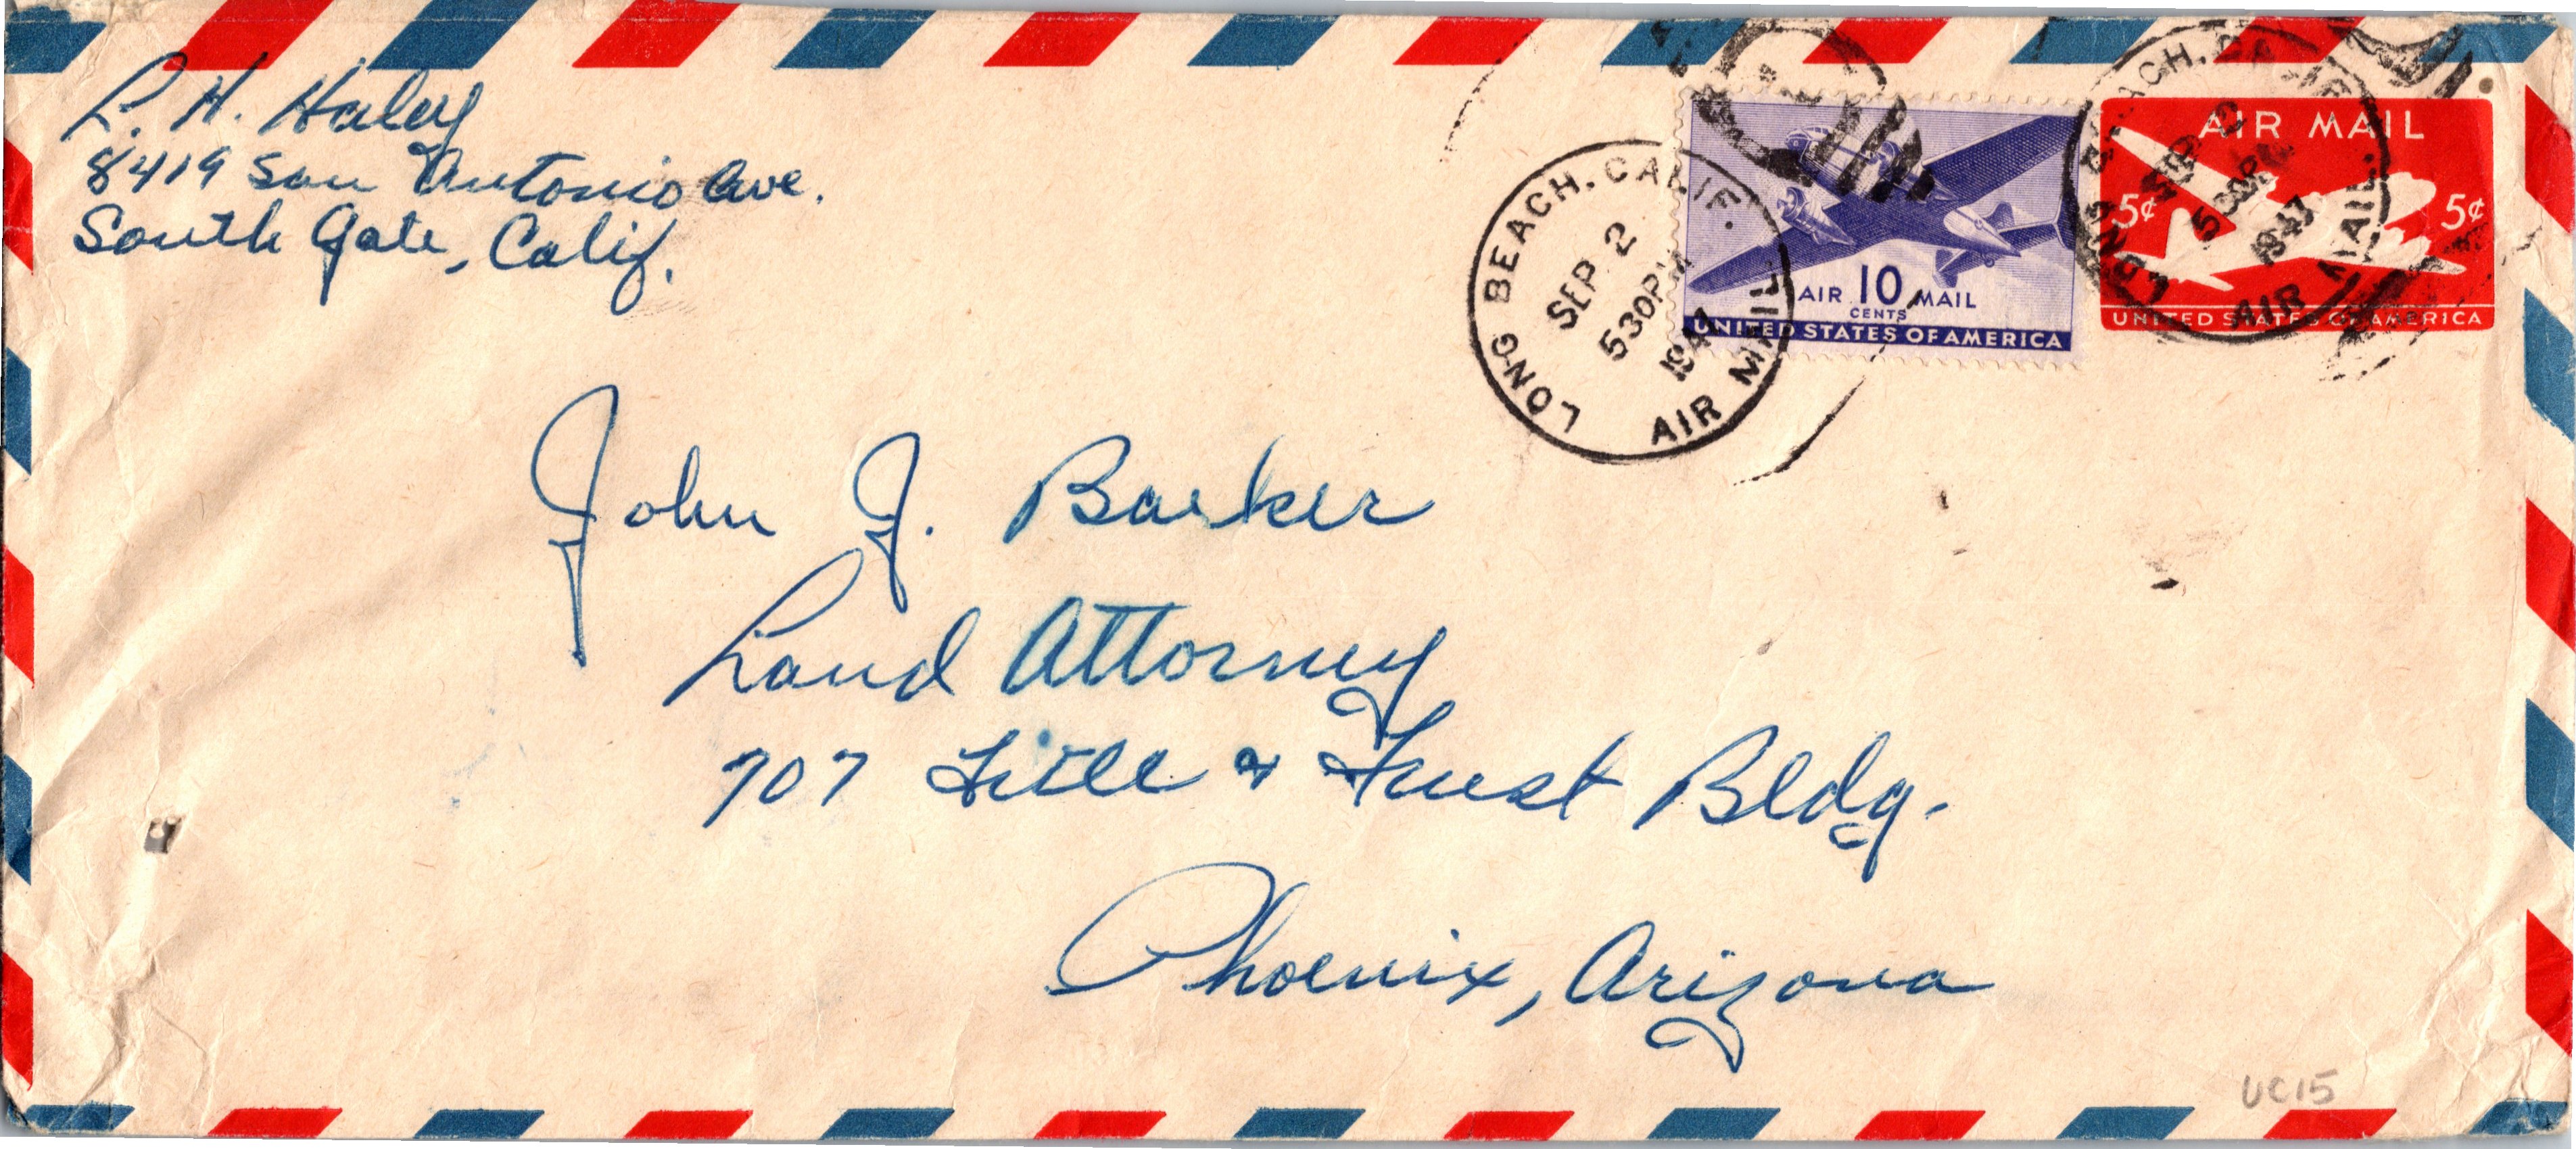 L. H. Haley
8419 San Antonio Ave.
South Gate, Calif.
LONG BEACH, CALIF.
SEP 2
530PM
1947
AIR MAIL
AIR 10 MAIL
CENTS
UNITED STATES OF AMERICA
LONG BEACH, CALIF.
SEP 2
530PM
1947
AIR MAIL.
AIR MAIL
5¢ 5¢
UNITED STATES OF AMERICA
John J. Barker
Land Attorney
707 Title & Trust Bldg.
Phoenix, Arizona
UC15